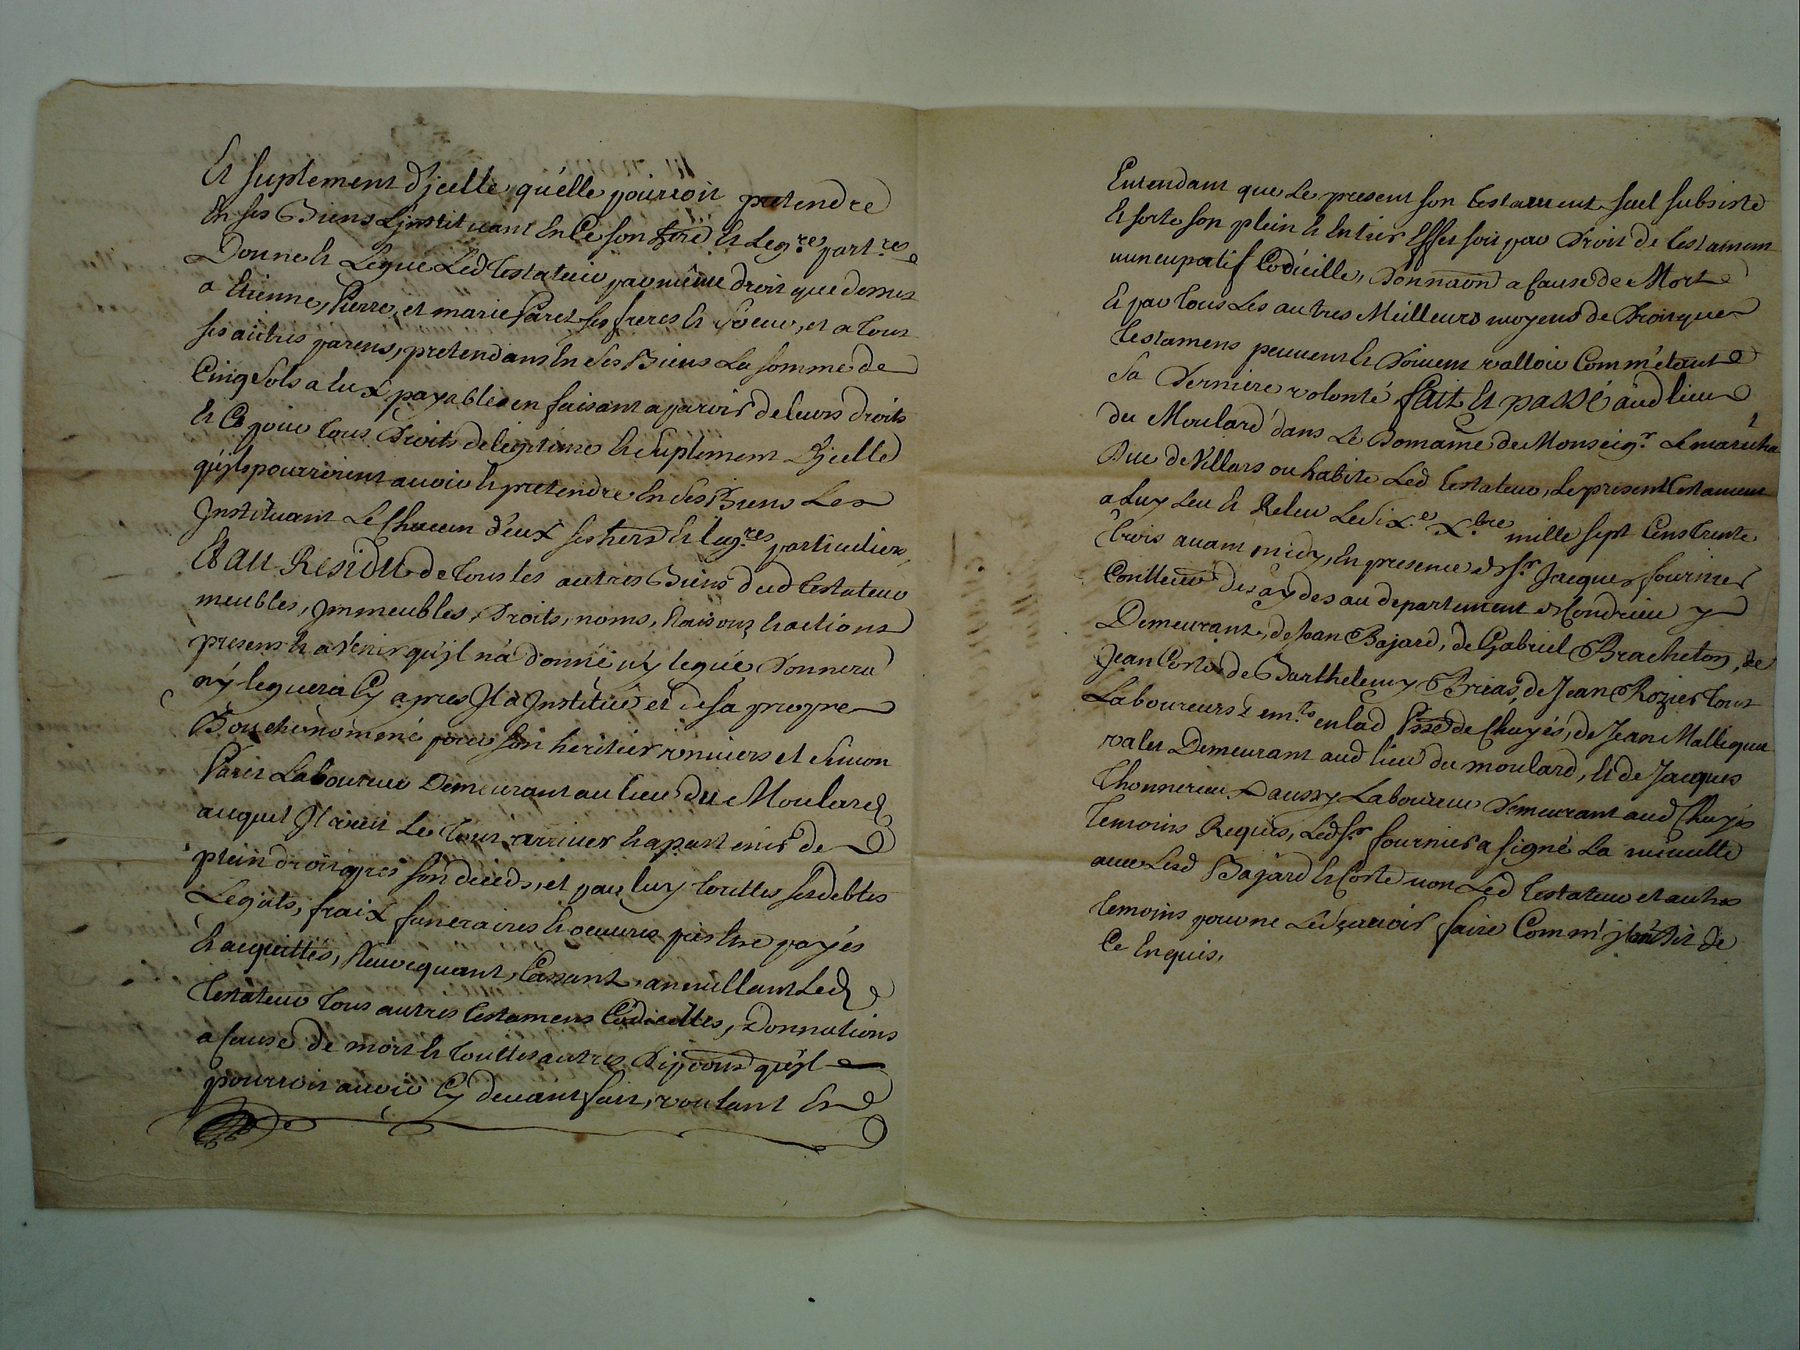 Et suplement d'jcelle qu'elle pourroit pretendre
En ses Biens L'instituant En Ce son here et Leg.re part.re
Donne et Legue Led Testateur par même droit que dessus
a Etienne, Pierre, et marie Paret ses freres et soeur, et a tous
ses autres parens, pretendans En Ses Biens La somme de
Cinq Sols a Eux payables en faisant aparoir de leurs droits
Et Ce pour tous Droits de legitime et Suplement D'jcelle
qu'jls pourroient avoir et pretendre En Ses Biens Les
Jnstituant Le Chacun d'eux ses hers et leg.res particuliers
Et au Residu de tous les autres Biens dud Testateur
meubles, jmmeubles, Droits, noms, Raisons et actions
presens et a Venir qu'jl n'a donné n'y legué Donnera
n'y leguera Cy apres Jl a Jnstitué et de sa propre
Bouche nommé pour son heritier universel Simon
Paret Laboureur Demeurant au lieu du Moulard
auquel Jl veut Le tout arriver et apartenir de
plein droit apres son deceds, et par luy touttes ses debtes
Legats, fraix funeraires et oeuvres pies Etre payés
et acquittés, Revocquant, Cassant, annullant Led
Testateur tous autres Testamens Codicilles, Donnations
a Cause de mort et touttes autres Disp̄ons qu'jl
pourroit avoir Cy devant fait, voulant Et
Entendant que Le present son testament soit subsiste
Et sorte son plein et Entier Effet soit par Droit de testament
nuncupatif Codicille, Donnaōn a Cause de Mort
Et par tous Les autres Meilleurs moyens de Droit que
testamens peuvent et Doivent valloir Comm'étant
Sa Derniere volonté fait et passé aud lieu
du Moulard dans Le Domaine de Monseig.r Le marécha
Duc de Villars ou habite Led testateur, Le present testament
a Luy Leu et Releu Le dix.e X.bre mille sept Cens trente
trois avant midy, En presence de s.r Jacques fournier
Conlleur des aydes au departement de Condrieu y
Demeurant, de Jean Bajard, de Gabriel Bracheton, de
Jean Corte de Barthelemy Brias, de Jean Rozier tous
Laboureurs dem.ts en lad Psse de Chuyés, de Jean Malleque
valet Demeurant aud lieu du moulard, et de Jacques
Thonnerieu Laboureur Demeurant aud Chuyés
temoins Requis, Led s.r fournier a signé La minutte
avec Lesd Bajard et Corte non Led testateur et autres
temoins pour ne Le sçavoir faire Comm' jls ont dit de
Ce Enquis,